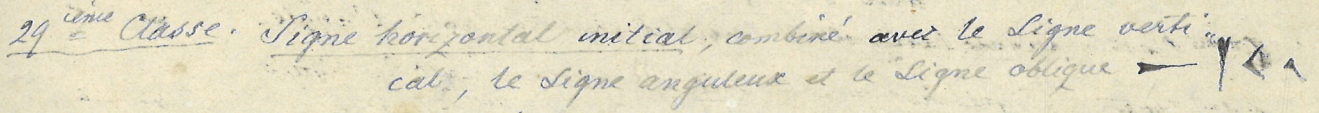 29ième Classe. Signe horizontal initial, combiné avec le Signe verti„
cal, le Signe anguleux et le Signe oblique